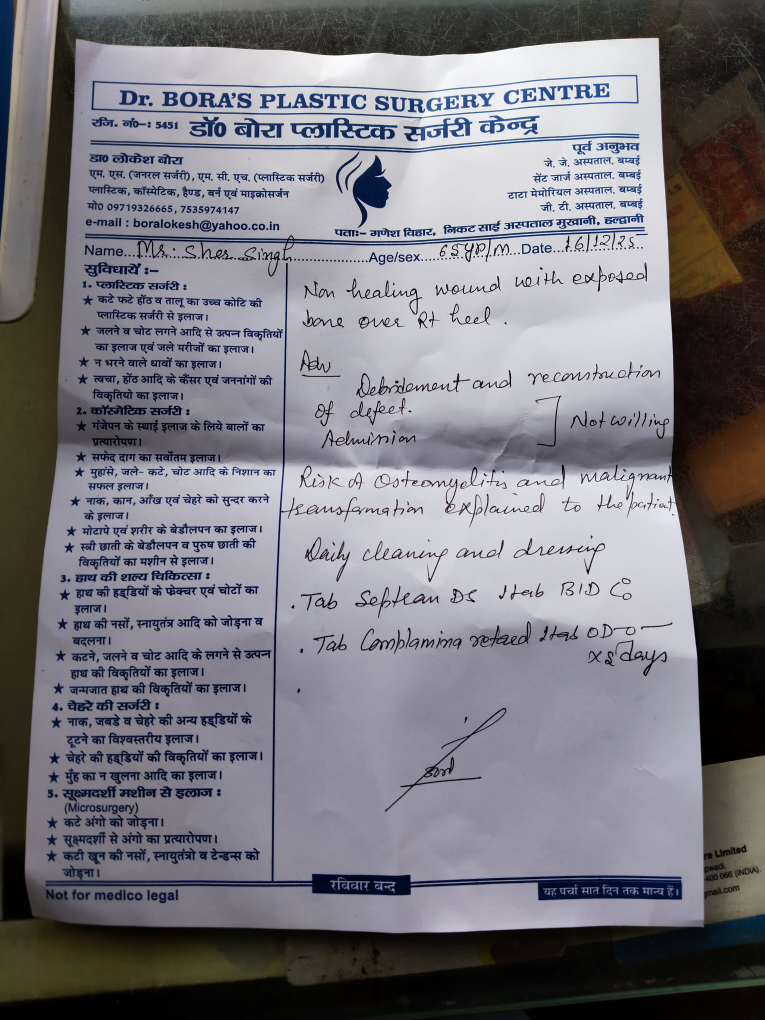 Dr. BORA'S PLASTIC SURGERY CENTRE
रजि. नं०-: 5451 डॉ0 बोरा प्लास्टिक सर्जरी केन्द्र
डा0 लोकेश बोरा
एम. एस. (जनरल सर्जरी), एम. सी. एच. (प्लास्टिक सर्जरी)
प्लास्टिक, कॉस्मेटिक, हैण्ड, बर्न एवं माइक्रोसर्जन
मो0 09719326665, 7535974147
e-mail : boralokesh@yahoo.co.in
पूर्व अनुभव
जे. जे. अस्पताल, बम्बई
सेंट जार्ज अस्पताल, बम्बई
टाटा मेमोरियल अस्पताल, बम्बई
जी. टी. अस्पताल, बम्बई
पताः- गणेश विहार, निकट साई अस्पताल मुखानी, हल्द्वानी
Name...Mr. Sher Singh...Age/sex...65yr/m...Date...16/12/25
सुविधायें :-
1. प्लास्टिक सर्जरी :
★ कटे फटे होंठ व तालू का उच्च कोटि की
प्लास्टिक सर्जरी से इलाज।
★ जलने व चोट लगने आदि से उत्पन्न विकृतियों
का इलाज एवं जले मरीजों का इलाज।
★ न भरने वाले घावों का इलाज।
★ त्वचा, होंठ आदि के कैंसर एवं जननांगों की
विकृतियो का इलाज।
2. कॉस्मेटिक सर्जरी :
★ गंजेपन के स्थाई इलाज के लिये बालों का
प्रत्यारोपण।
★ सफेद दाग का सर्वोतम इलाज।
★ मुहांसे, जले- कटे, चोट आदि के निशान का
सफल इलाज।
★ नाक, कान, आँख एवं चेहरे को सुन्दर करने
के इलाज।
★ मोटापे एवं शरीर के बेडौलपन का इलाज।
★ स्त्री छाती के बेडौलपन व पुरुष छाती की
विकृतियों का मशीन से इलाज।
3. हाथ की शल्य चिकित्सा :
★ हाथ की हड्डियों के फ्रेक्चर एवं चोटों का
इलाज।
★ हाथ की नसों, स्नायुतंत्र आदि को जोड़ना व
बदलना।
★ कटने, जलने व चोट आदि के लगने से उत्पन्न
हाथ की विकृतियों का इलाज।
★ जन्मजात हाथ की विकृतियों का इलाज।
4. चेहरे की सर्जरी :
★ नाक, जबडे व चेहरे की अन्य हड्डियों के
टूटने का विश्वस्तरीय इलाज।
★ चेहरे की हड्डियों की विकृतियों का इलाज।
★ मुँह का न खुलना आदि का इलाज।
5. सूक्ष्मदर्शी मशीन से इलाज :
(Microsurgery)
★ कटे अंगो को जोड़ना।
★ सूक्ष्मदर्शी से अंगो का प्रत्यारोपण।
★ कटी खून की नसों, स्नायुतंत्रो व टेन्डन्स को
जोड़ना।
Non healing wound with exposed
bone over Rt heel.
Adv
Debridement and reconstruction
of defect.
Admission
Not willing
Risk of Osteomyelitis and malignant
transfamation explained to the patient.
Daily cleaning and dressing
. Tab Septran DS 1tab BID
. Tab Complamina retard 1tab OD-0-
days
Not for medico legal
रविवार बन्द
यह पर्चा सात दिन तक मान्य हैं।
re Limited
-400 066 (INDIA).